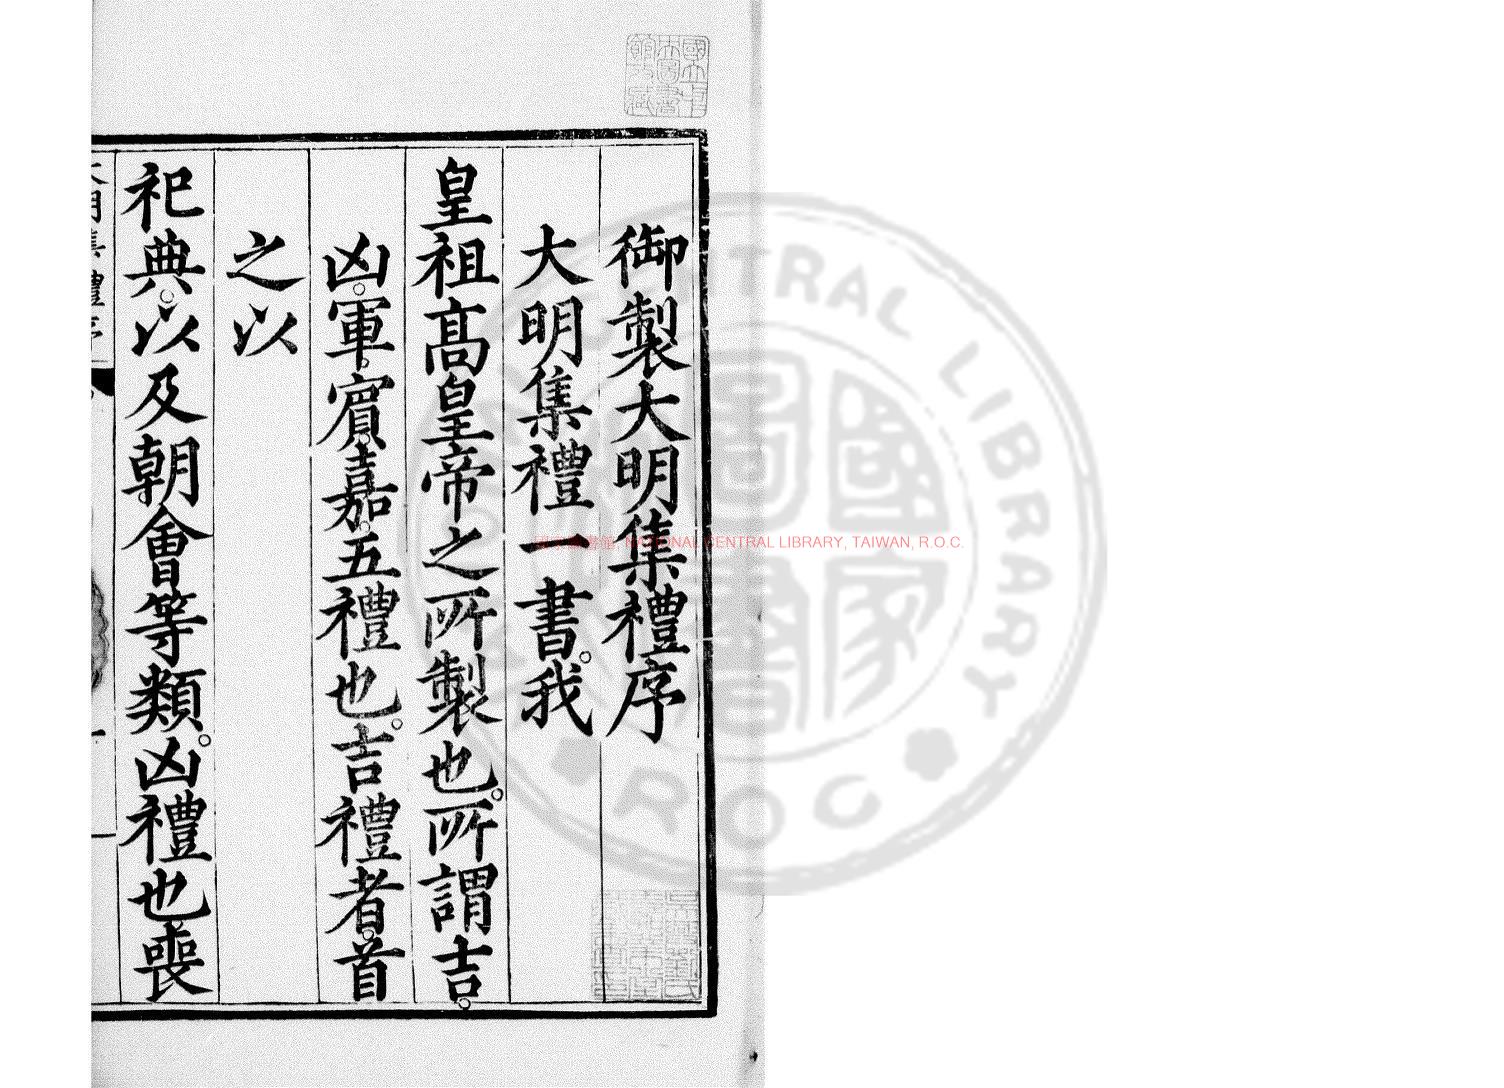 御製大明集禮序
大明集禮一書。我
皇祖高皇帝之所製也。所謂吉。
凶。軍。賓。嘉。五禮也。吉禮者。首
之以
祀典。以及朝會等類。凶禮也。喪
NATIONAL CENTRAL LIBRARY, TAIWAN, R.O.C.